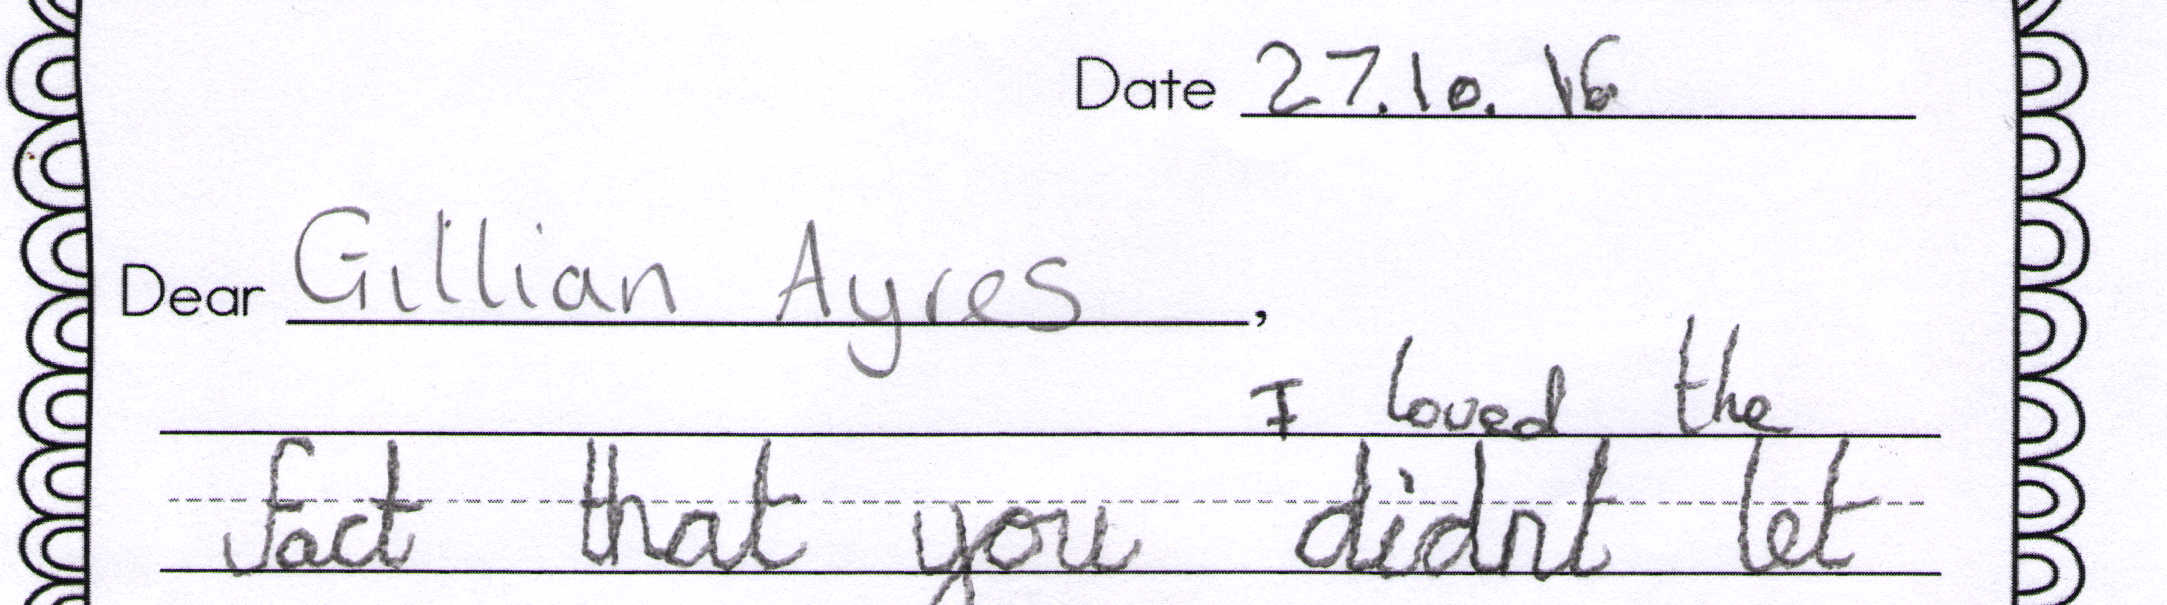 Date 27.10.16
Dear Gillian Ayres,
I loved the
fact that you didnt let